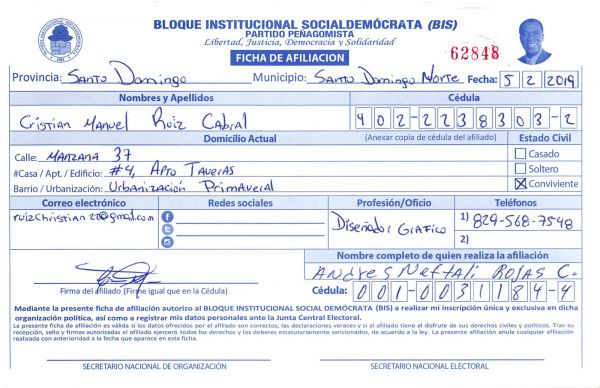 BLOQUE INSTITUCIONAL SOCIALDEMÓCRATA (BIS)
PARTIDO PEÑAGOMISTA
Libertad, Justicia, Democracia y Solidaridad
FICHA DE AFILIACION
62848
Provincia: Santo Domingo Municipio: Santo Domingo Norte Fecha: 5 2 2019
Nombres y Apellidos Cédula
Cristian Manuel Ruiz Cabral 402-2238303-2
Domicilio Actual (Anexar copia de cédula del afiliado) Estado Civil
Calle: Manzana 37 Casado
#Casa / Apt. / Edificio: #4, Apto Taveras Soltero
Barrio / Urbanización: Urbanización Primaveral Conviviente
Correo electrónico Redes sociales Profesión/Oficio Teléfonos
ruizchristian22@gmail.com Diseñador Grafico 1) 829-568-7548
2)
Nombre completo de quien realiza la afiliación
Andres Neftali Rojas C.
Firma del afiliado (Firme igual que en la Cédula) Cédula: 001-0031184-4
Mediante la presente ficha de afiliación autorizo al BLOQUE INSTITUCIONAL SOCIAL DEMÓCRATA (BIS) a realizar mi inscripción única y exclusiva en dicha
organización política, así como a registrar mis datos personales ante la Junta Central Electoral.
La presente ficha de afiliación es válida si los datos ofrecidos por el afiliado son correctos, las declaraciones veraces y si el afiliado tiene el disfrute de sus derechos civiles y políticos. Tras su
recepción, sello y firmas autorizadas el afiliado ejercerá todos los derechos y los deberes estatutariamente sancionados, de acuerdo a la ley. La presente afiliación anula cualquier afiliación
realizada con anterioridad a la fecha que aparece en esta ficha.
SECRETARIO NACIONAL DE ORGANIZACIÓN SECRETARIO NACIONAL ELECTORAL